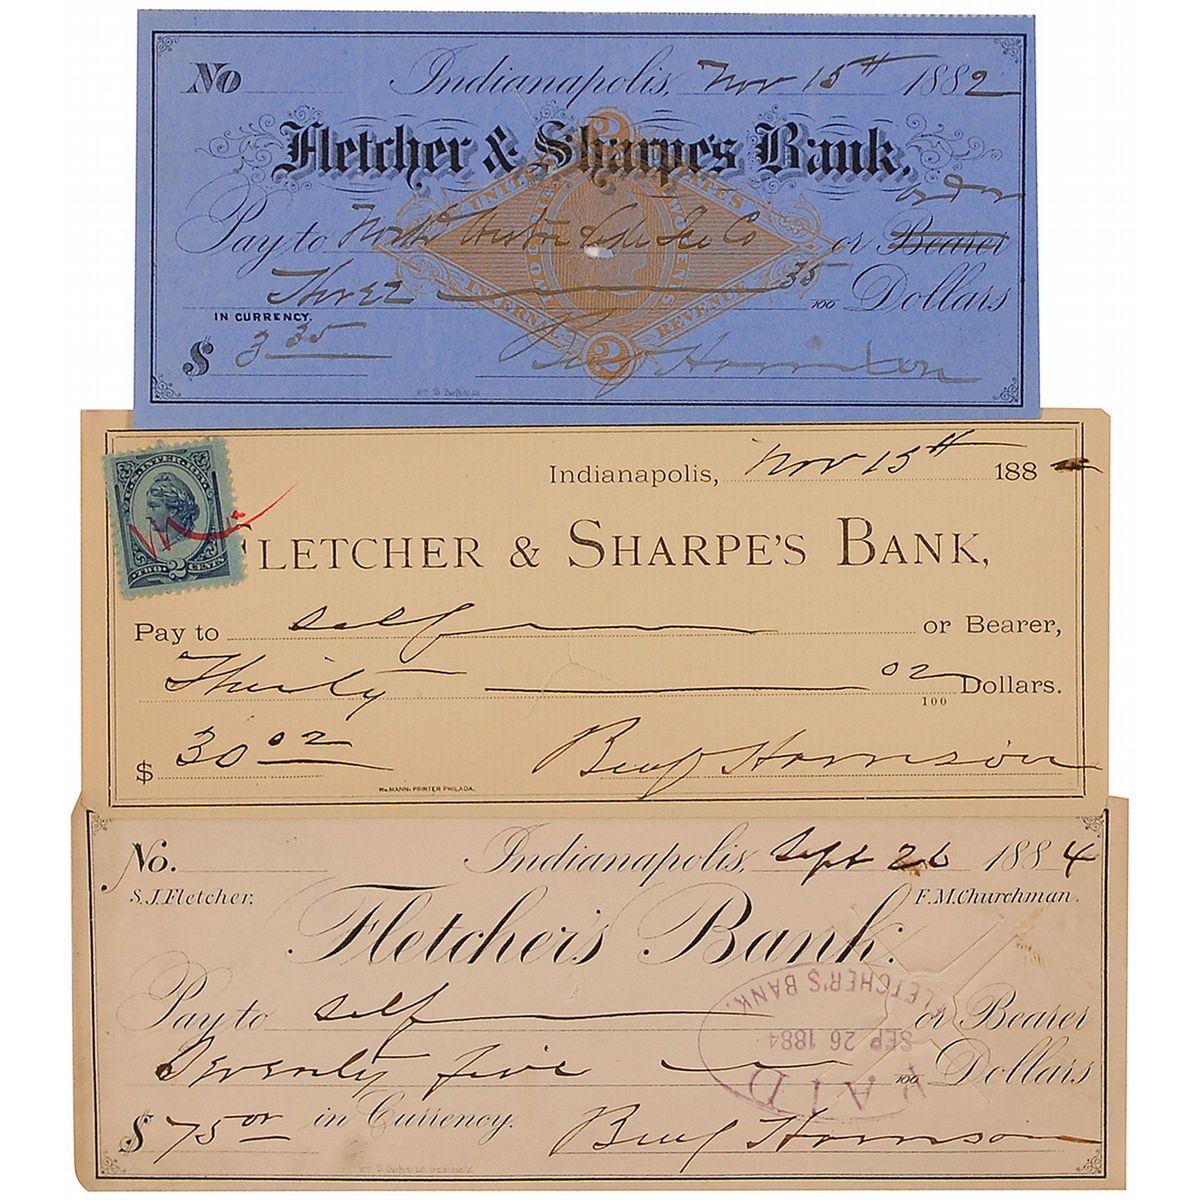 No Indianapolis, Nov 15th 1882
Fletcher & Sharpe's Bank.
order
Pay to North Western Ice Co or Bearer
UNITED STATES
INTERNAL REVENUE
TWO CENTS
2
2
Three 35/100 Dollars
IN CURRENCY.
$ 3 35 Benj Harrison
Indianapolis, Nov 15th 188
U.S. INTER. REV.
TWO 2 CENTS
FLETCHER & SHARPE'S BANK,
Pay to self or Bearer,
Thirty 02/100 Dollars.
$ 30 02 Benj Harrison
Wm MANN, PRINTER PHILADA.
No. Indianapolis, Sept 26 1884
S.J. Fletcher. F.M. Churchman.
Fletcher's Bank.
Pay to self or Bearer
Seventy five no/100 Dollars
$ 75 00 in Currency. Benj Harrison
PAID
SEP 26 1884
FLETCHER'S BANK.